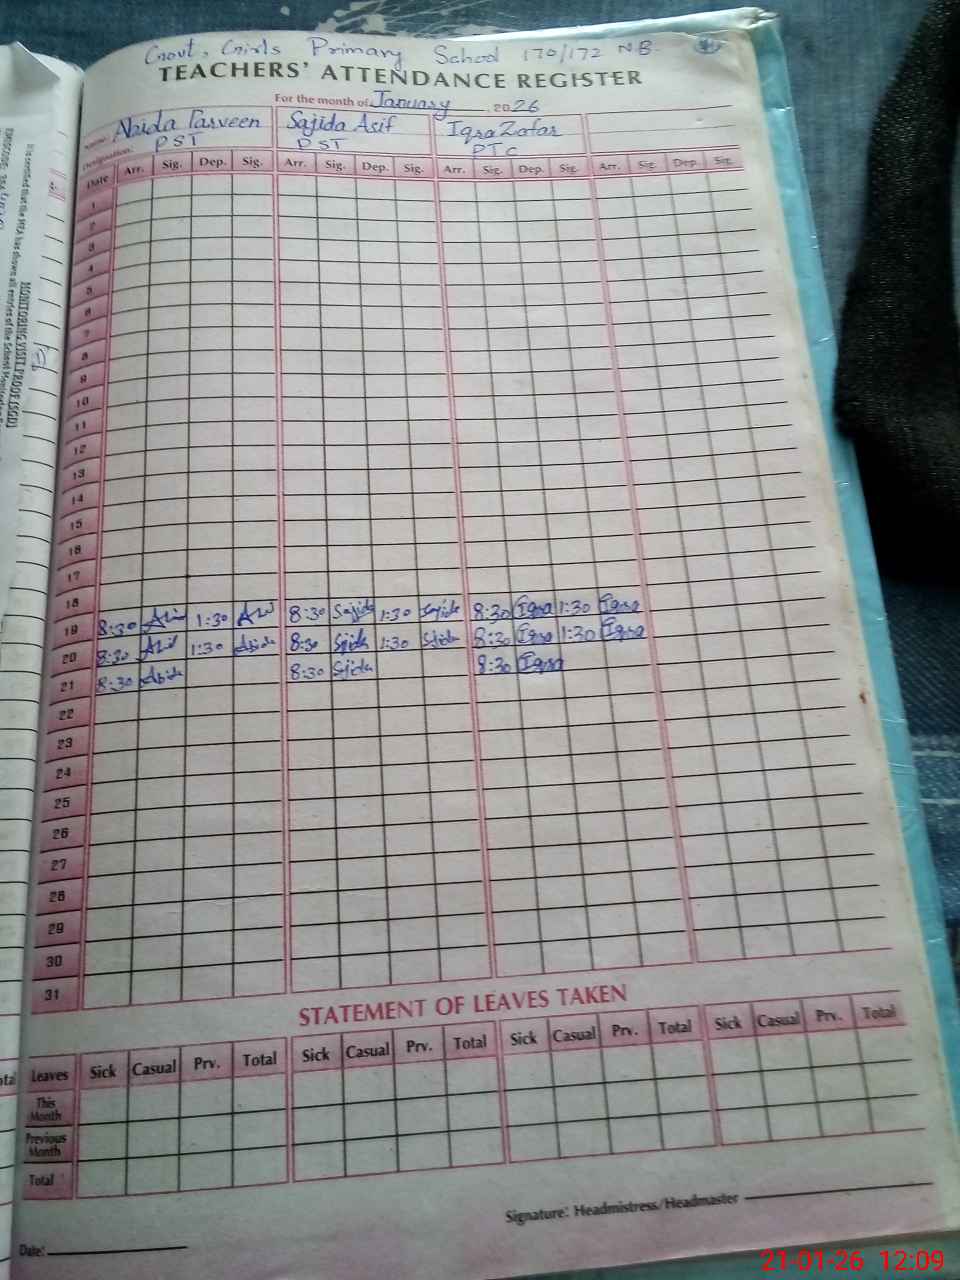 Govt, Girls Primary School 170/172 N.B.
TEACHERS' ATTENDANCE REGISTER
For the month of January 2026
Name: Abida Parveen Sajida Asif Iqra Zafar
Designation: PST PST PTC
Date Arr. Sig. Dep. Sig. Arr. Sig. Dep. Sig. Arr. Sig. Dep. Sig. Arr. Sig. Dep. Sig.
1
2
3
4
5
6
7
8
9
10
11
12
13
14
15
16
17
18
19 8:30 1:30 8:30 Sajida 1:30 Sajida 8:30 Iqra 1:30 Iqra
20 8:30 1:30 Abida 8:30 Sjida 1:30 Sjida 8:30 Iqra 1:30 Iqra
21 8:30 Abida 8:30 Sjida 8:30 Iqra
22
23
24
25
26
27
28
29
30
31
STATEMENT OF LEAVES TAKEN
Leaves Sick Casual Prv. Total Sick Casual Prv. Total Sick Casual Prv. Total Sick Casual Prv. Total
This Month
Previous Month
Total
Signature: Headmistress/Headmaster
Date:
21-01-26 12:09
MONITORING VISIT PROOF (SGD)
It is certified that the MEA has shown all entries of the School